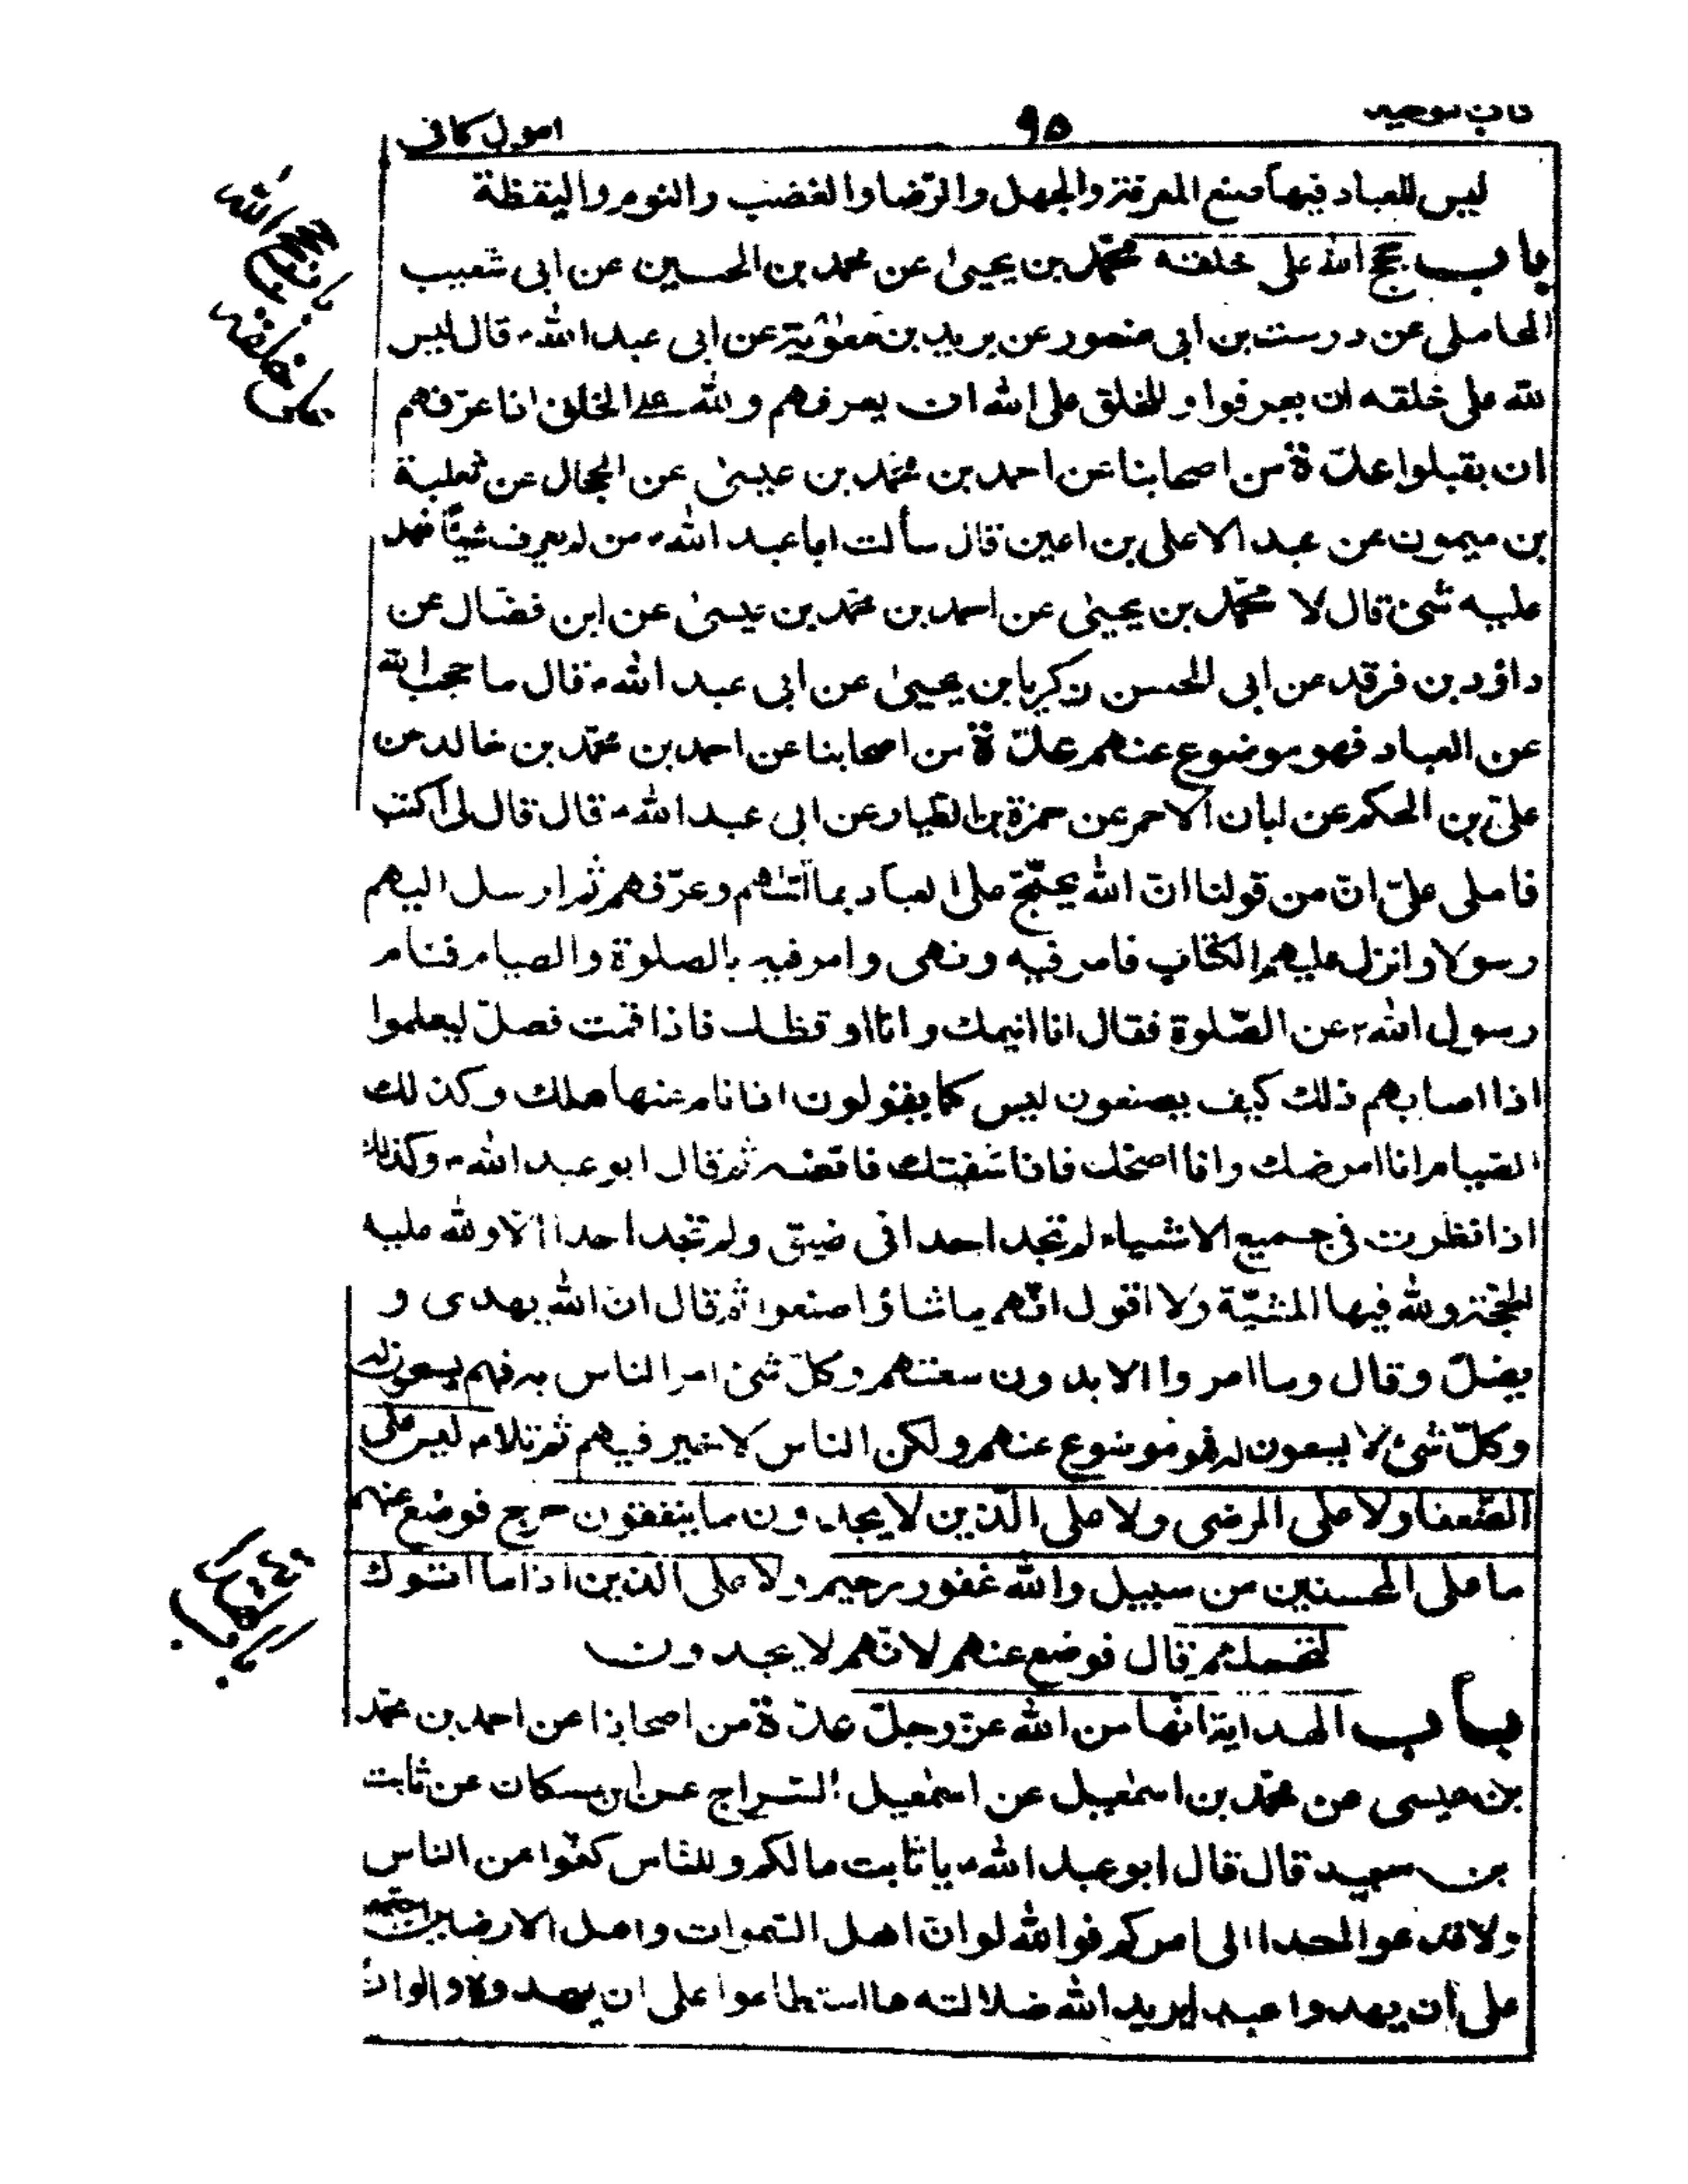 كتاب توحيد ٩٥ اصول كافى
ليس للعباد فيها صنع المعرفة والجهل والرّضا والغضب والنوم واليقظة
باب حجج الله على خلقه محمّد بن يحيىٰ عن محمد بن الحسين عن ابى شعيب
المحاملى عن درست بن ابى منصور عن بريد بن معٰوية عن ابى عبد الله ع قال ليس
لله على خلقه ان يعرفوا وللخلق على الله ان يعرفهم ولله على الخلق اذا عرّفهم
ان يقبلوا عدّة من اصحابنا عن احمد بن محمّد بن عيسىٰ عن الحجال عن ثعلبة
بن ميمون عن عبد الاعلى بن اعين قال سألت ابا عبد الله ع من لم يعرف شيئًا هل
عليه شئ قال لا محمّد بن يحيىٰ عن احمد بن محمّد بن عيسىٰ عن ابن فضّال عن
داؤد بن فرقد عن ابى الحسن زكريا بن يحيىٰ عن ابى عبد الله ع قال ما حجب الله
عن العباد فهو موضوع عنهم عدّة من اصحابنا عن احمد بن محمّد بن خالد عن
علىّ بن الحكم عن ابان الاحمر عن حمزة بن الطيار عن ابى عبد الله ع قال قال لى اكتب
فاملى علىّ انّ من قولنا انّ الله يحتجّ على العباد بما اٰتٰهم وعرّفهم ثم ارسل اليهم
رسولا وانزل عليهم الكتاب فامر فيه ونهى وامر فيه بالصلوة والصيام فنام
رسول الله ص عن الصّلوة فقال انا انيمك وانا اوقظك فاذا قمت فصلّ ليعلموا
اذا اصابهم ذلك كيف يصنعون ليس كما يقولون اذا نام عنها هلك وكذلك
الصيام انا امرضك وانا اصحّك فاذا شفيتك فاقضه ثم قال ابو عبد الله ع وكذلك
اذا نظرت فى جميع الاشياء لم تجد احدا فى ضيق ولم تجد احدا الّا ولله عليه
الحجّة ولله فيها المشيّة ولا اقول انّهم ما شاؤا صنعوا ثم قال ان الله يهدى و
يضلّ وقال وما امروا الا بدون سعتهم وكلّ شئ امر الناس به فهم يسعون له
وكلّ شئ لا يسعون له فهو موضوع عنهم ولكن الناس لا خير فيهم ثم تلا ع ليس على
الضّعفا ولا على المرضى ولا على الّذين لا يجدون ما ينفقون حرج فوضع عنهم
ما على المحسنين من سبيل والله غفور رحيم ولا على الذين اذا ما اتوك
لتحملهم قال فوضع عنهم لانّهم لا يجدون
باب الهداية انّها من الله عزّ وجلّ عدّة من اصحابنا عن احمد بن محمّد
بن عيسى عن محمّد بن اسمٰعيل عن اسمٰعيل السّراج عن ابن مسكان عن ثابت
بن سعيد قال قال ابو عبد الله ع يا ثابت ما لكم وللنّاس كفّوا عن الناس
ولا تدعوا احدا الى امركم فوالله لو انّ اهل السّموات واهل الارضين اجتمعوا
على ان يهدوا عبدا يريد الله ضلالته ما استطاعوا على ان يهدوه ولو انّ